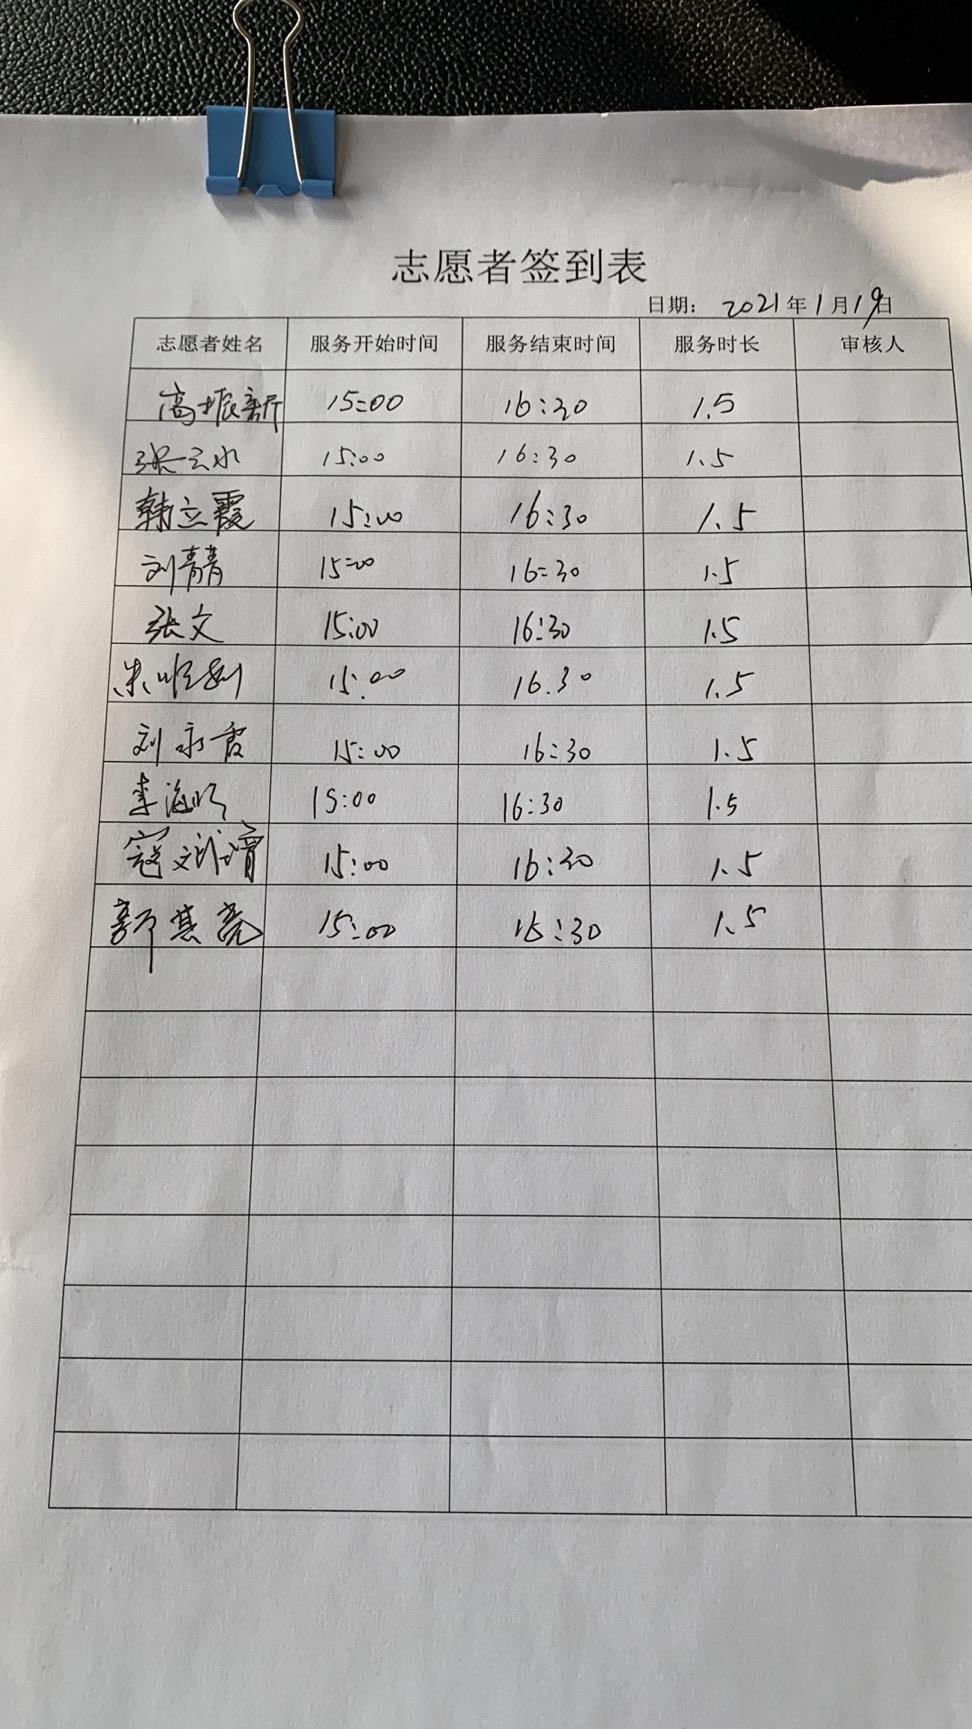 志愿者签到表
日期: 2021年1月19日
志愿者姓名 服务开始时间 服务结束时间 服务时长 审核人
高振新 15:00 16:30 1.5
张云水 15:00 16:30 1.5
韩立霞 15:00 16:30 1.5
刘青青 15:00 16:30 1.5
张文 15:00 16:30 1.5
朱顺利 15:00 16.30 1.5
刘永霞 15:00 16:30 1.5
李海明 15:00 16:30 1.5
寇文 15:00 16:30 1.5
郭其亮 15:00 16:30 1.5